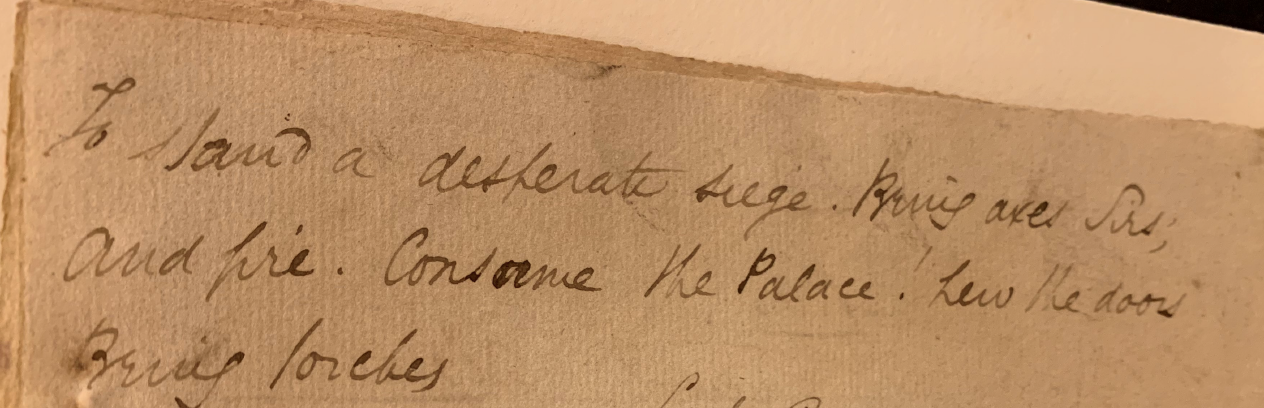 To stand a desperate siege. Bring axes Sirs,
And fire. Consume the Palace! hew the doors
Bring torches